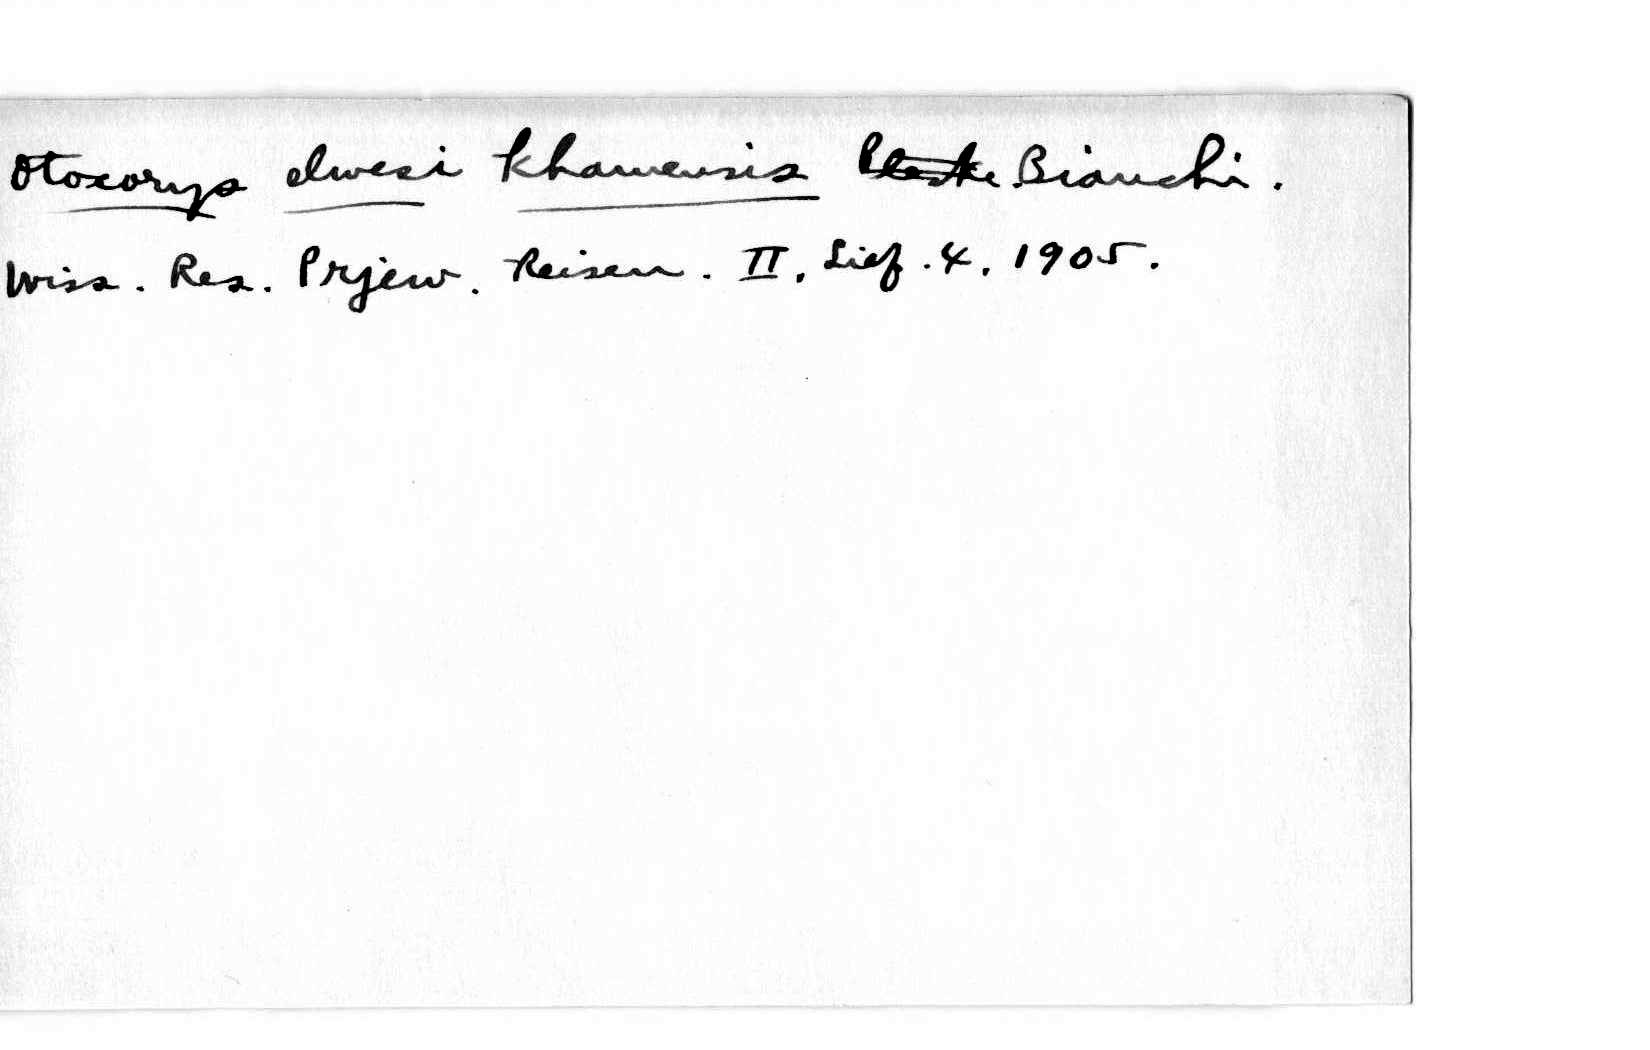 Otocorys elwesi khamensis Pleske Bianchi.
Wiss. Res. Prjew. Reisen. II, Lief. 4. 1905.